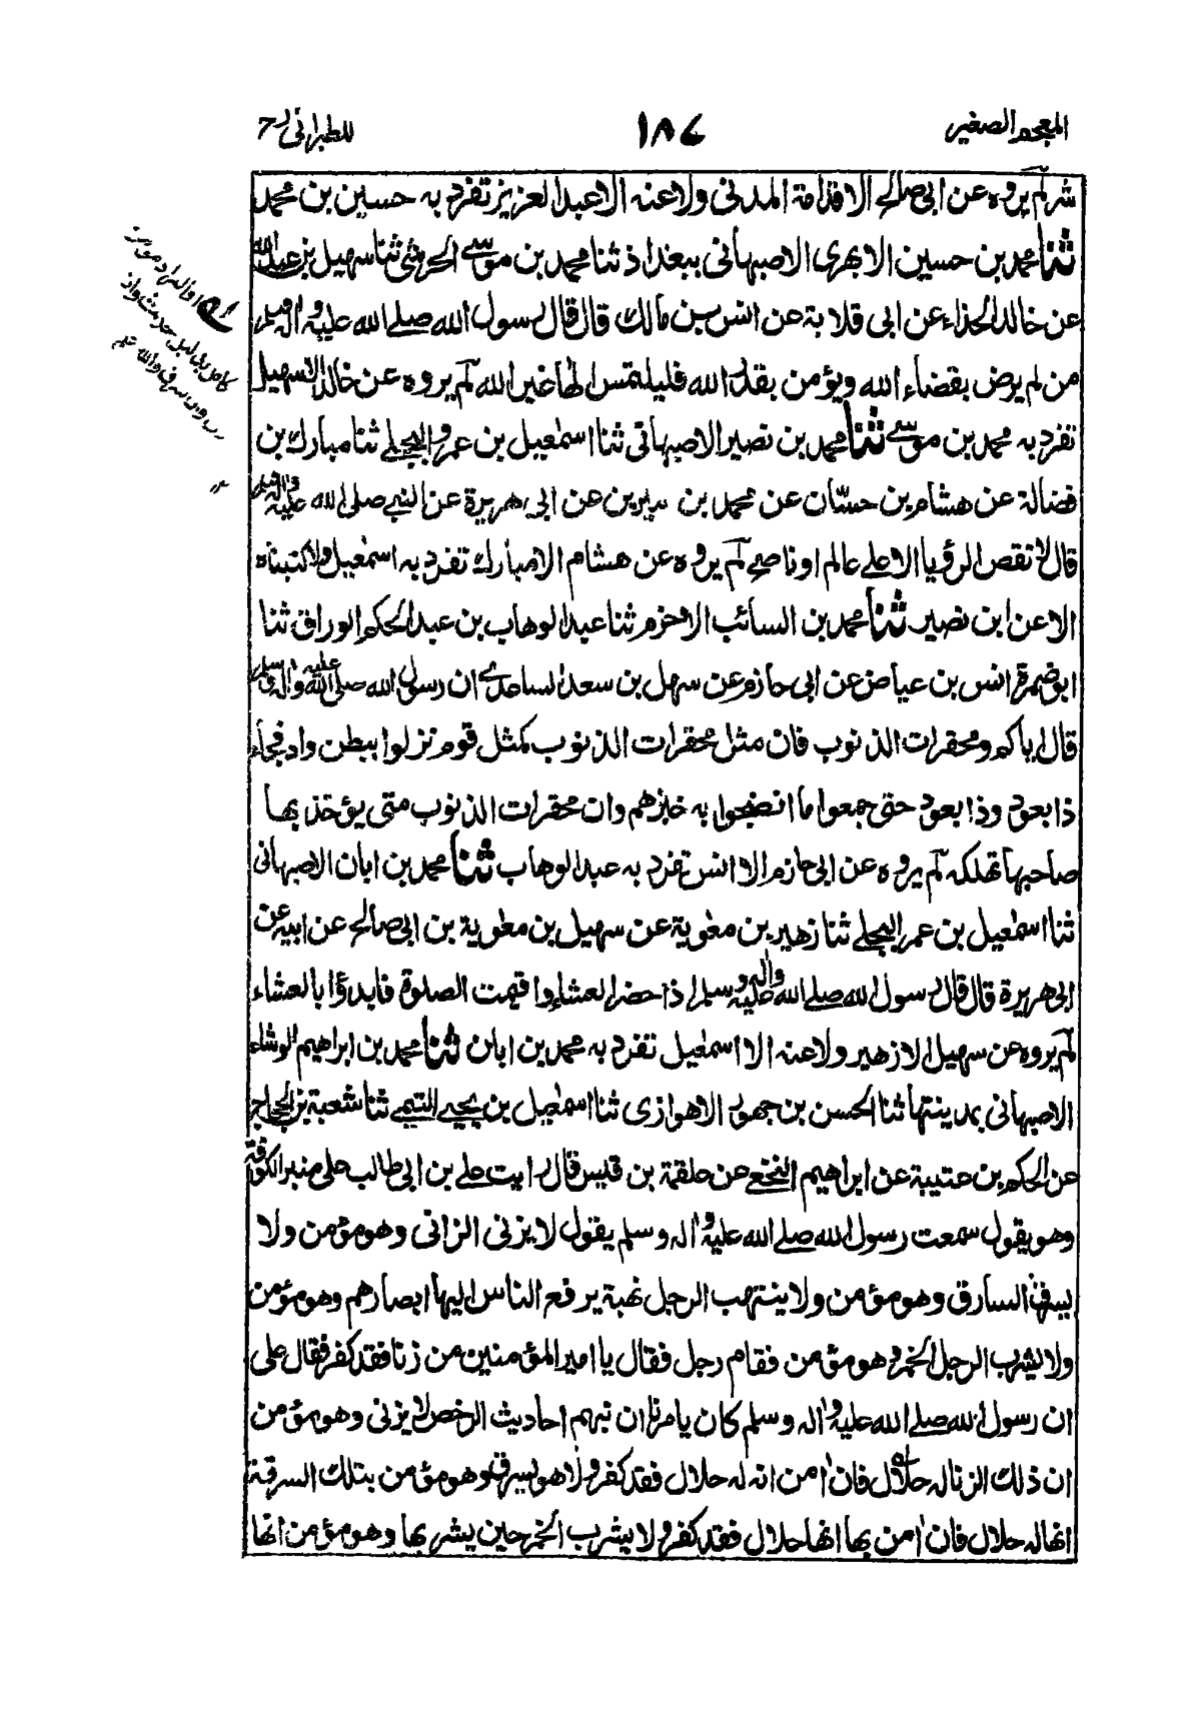 المعجم الصغير
١٨٧
للطبراني ر7
شر لم يروه عن ابي صالح الا قدامة المدني ولا عنه الا عبد العزيز تفرد به حسين بن محمد
ثنا محمد بن حسين الابهرى الاصبهاني ببغداد ثنا محمد بن موسى الحرشي ثنا سهيل بن عبد الله
عن خالد الحذاء عن ابي قلابة عن انس بن مالك قال قال رسول الله صلى الله عليه واله وسلم
من لم يرض بقضاء الله ويؤمن بقدر الله فليلتمس الها غير الله لم يروه عن خالد الا سهيل
تفرد به محمد بن موسى ثنا محمد بن نصير الاصبهاني ثنا اسمعيل بن عمرو البجلي ثنا مبارك بن
فضالة عن هشام بن حسّان عن محمد بن سيرين عن ابي هريرة عن النبي صلى الله عليه واله وسلم
قال لا تقص الرؤيا الا على عالم او ناصح لم يروه عن هشام الا مبارك تفرد به اسمعيل ولا كتبناه
الا عن ابن نصير ثنا محمد بن السائب الاخرم ثنا عبد الوهاب بن عبد الحكم الوراق ثنا
ابو ضمرة انس بن عياض عن ابي حازم عن سهل بن سعد الساعدي ان رسول الله صلى الله عليه واله وسلم
قال اياكم ومحقرات الذنوب فان مثل محقرات الذنوب كمثل قوم نزلوا ببطن واد فجاء
ذا بعود وذا بعود حتى جمعوا ما انضجوا به خبزهم وان محقرات الذنوب متى يؤخذ بها
صاحبها تهلكه لم يروه عن ابي حازم الا انس تفرد به عبد الوهاب ثنا محمد بن ابان الاصبهاني
ثنا اسمعيل بن عمر البجلي ثنا زهير بن معوية عن سهيل بن معوية بن ابي صالح عن ابيه عن
ابي هريرة قال قال رسول الله صلى الله عليه واله وسلم اذا حضر العشاء واقيمت الصلوة فابدؤا بالعشاء
لم يروه عن سهيل الا زهير ولا عنه الا اسمعيل تفرد به محمد بن ابان ثنا محمد بن ابراهيم الوشاء
الاصبهاني بمدينتها ثنا الحسن بن جهور الاهوازى ثنا اسمعيل بن يحيى التيمي ثنا شعبة بن الحجاج
عن الحكم بن عتيبة عن ابراهيم النخعي عن علقمة بن قيس قال رايت على بن ابي طالب على منبر الكوفة
وهو يقول سمعت رسول الله صلى الله عليه واله وسلم يقول لا يزني الزاني وهو مؤمن ولا
يسرق السارق وهو مؤمن ولا ينتهب الرجل نهبة يرفع الناس اليها ابصارهم وهو مؤمن
ولا يشرب الرجل الخمر وهو مؤمن فقام رجل فقال يا امير المؤمنين من زنا فقد كفر فقال على
ان رسول الله صلى الله عليه واله وسلم كان يامرنا ان نبهم احاديث الرخص لا يزني وهو مؤمن
ان ذلك الزنا له حلال فان امن انه له حلال فقد كفر ولا هو يسرق وهو مؤمن بتلك السرقة
انها له حلال فان امن بها انها حلال فقد كفر ولا يشرب الخمر حين يشربها وهو مؤمن انها